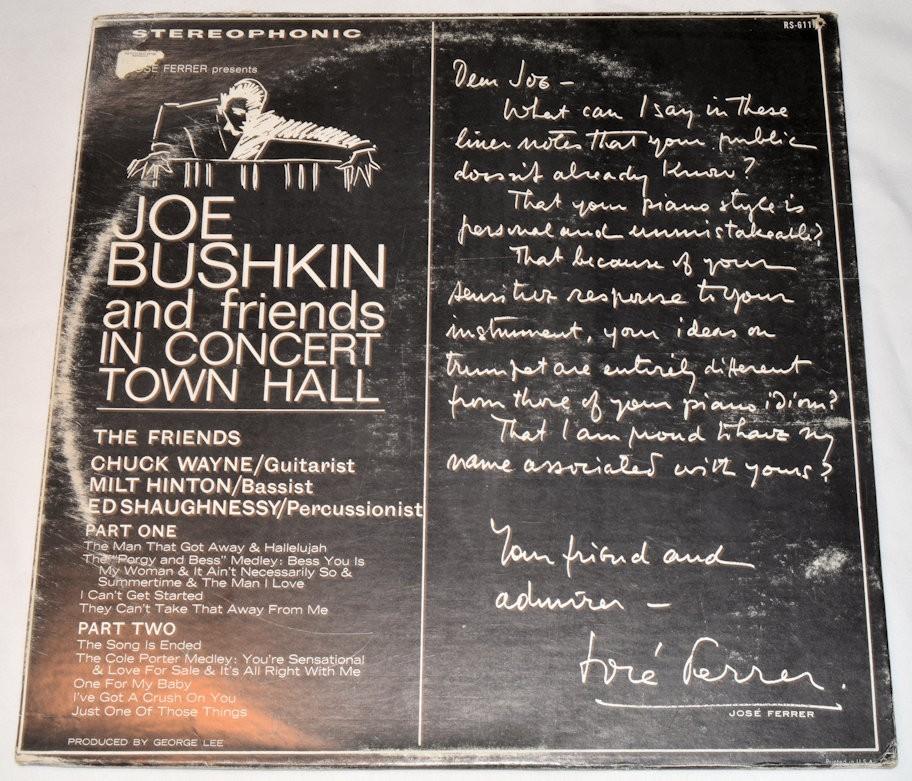 STEREOPHONIC
JOSÉ FERRER presents
JOE
BUSHKIN
and friends
IN CONCERT
TOWN HALL
THE FRIENDS
CHUCK WAYNE/Guitarist
MILT HINTON/Bassist
ED SHAUGHNESSY/Percussionist
PART ONE
The Man That Got Away & Hallelujah
The "Porgy and Bess" Medley: Bess You Is
My Woman & It Ain't Necessarily So &
Summertime & The Man I Love
I Can't Get Started
They Can't Take That Away From Me
PART TWO
The Song Is Ended
The Cole Porter Medley: You're Sensational
& Love For Sale & It's All Right With Me
One For My Baby
I've Got A Crush On You
Just One Of Those Things
PRODUCED BY GEORGE LEE
Dear Joe -
What can I say in these
liner notes that your public
doesn't already know?
That your piano style is
personal and unmistakeable?
That because of your
sensitive response to your
instrument, your ideas on
trumpet are entirely different
from those of your piano idiom?
That I am proud to have my
name associated with yours?
Your friend and
admirer -
José Ferrer.
JOSÉ FERRER
Printed in U.S.A.